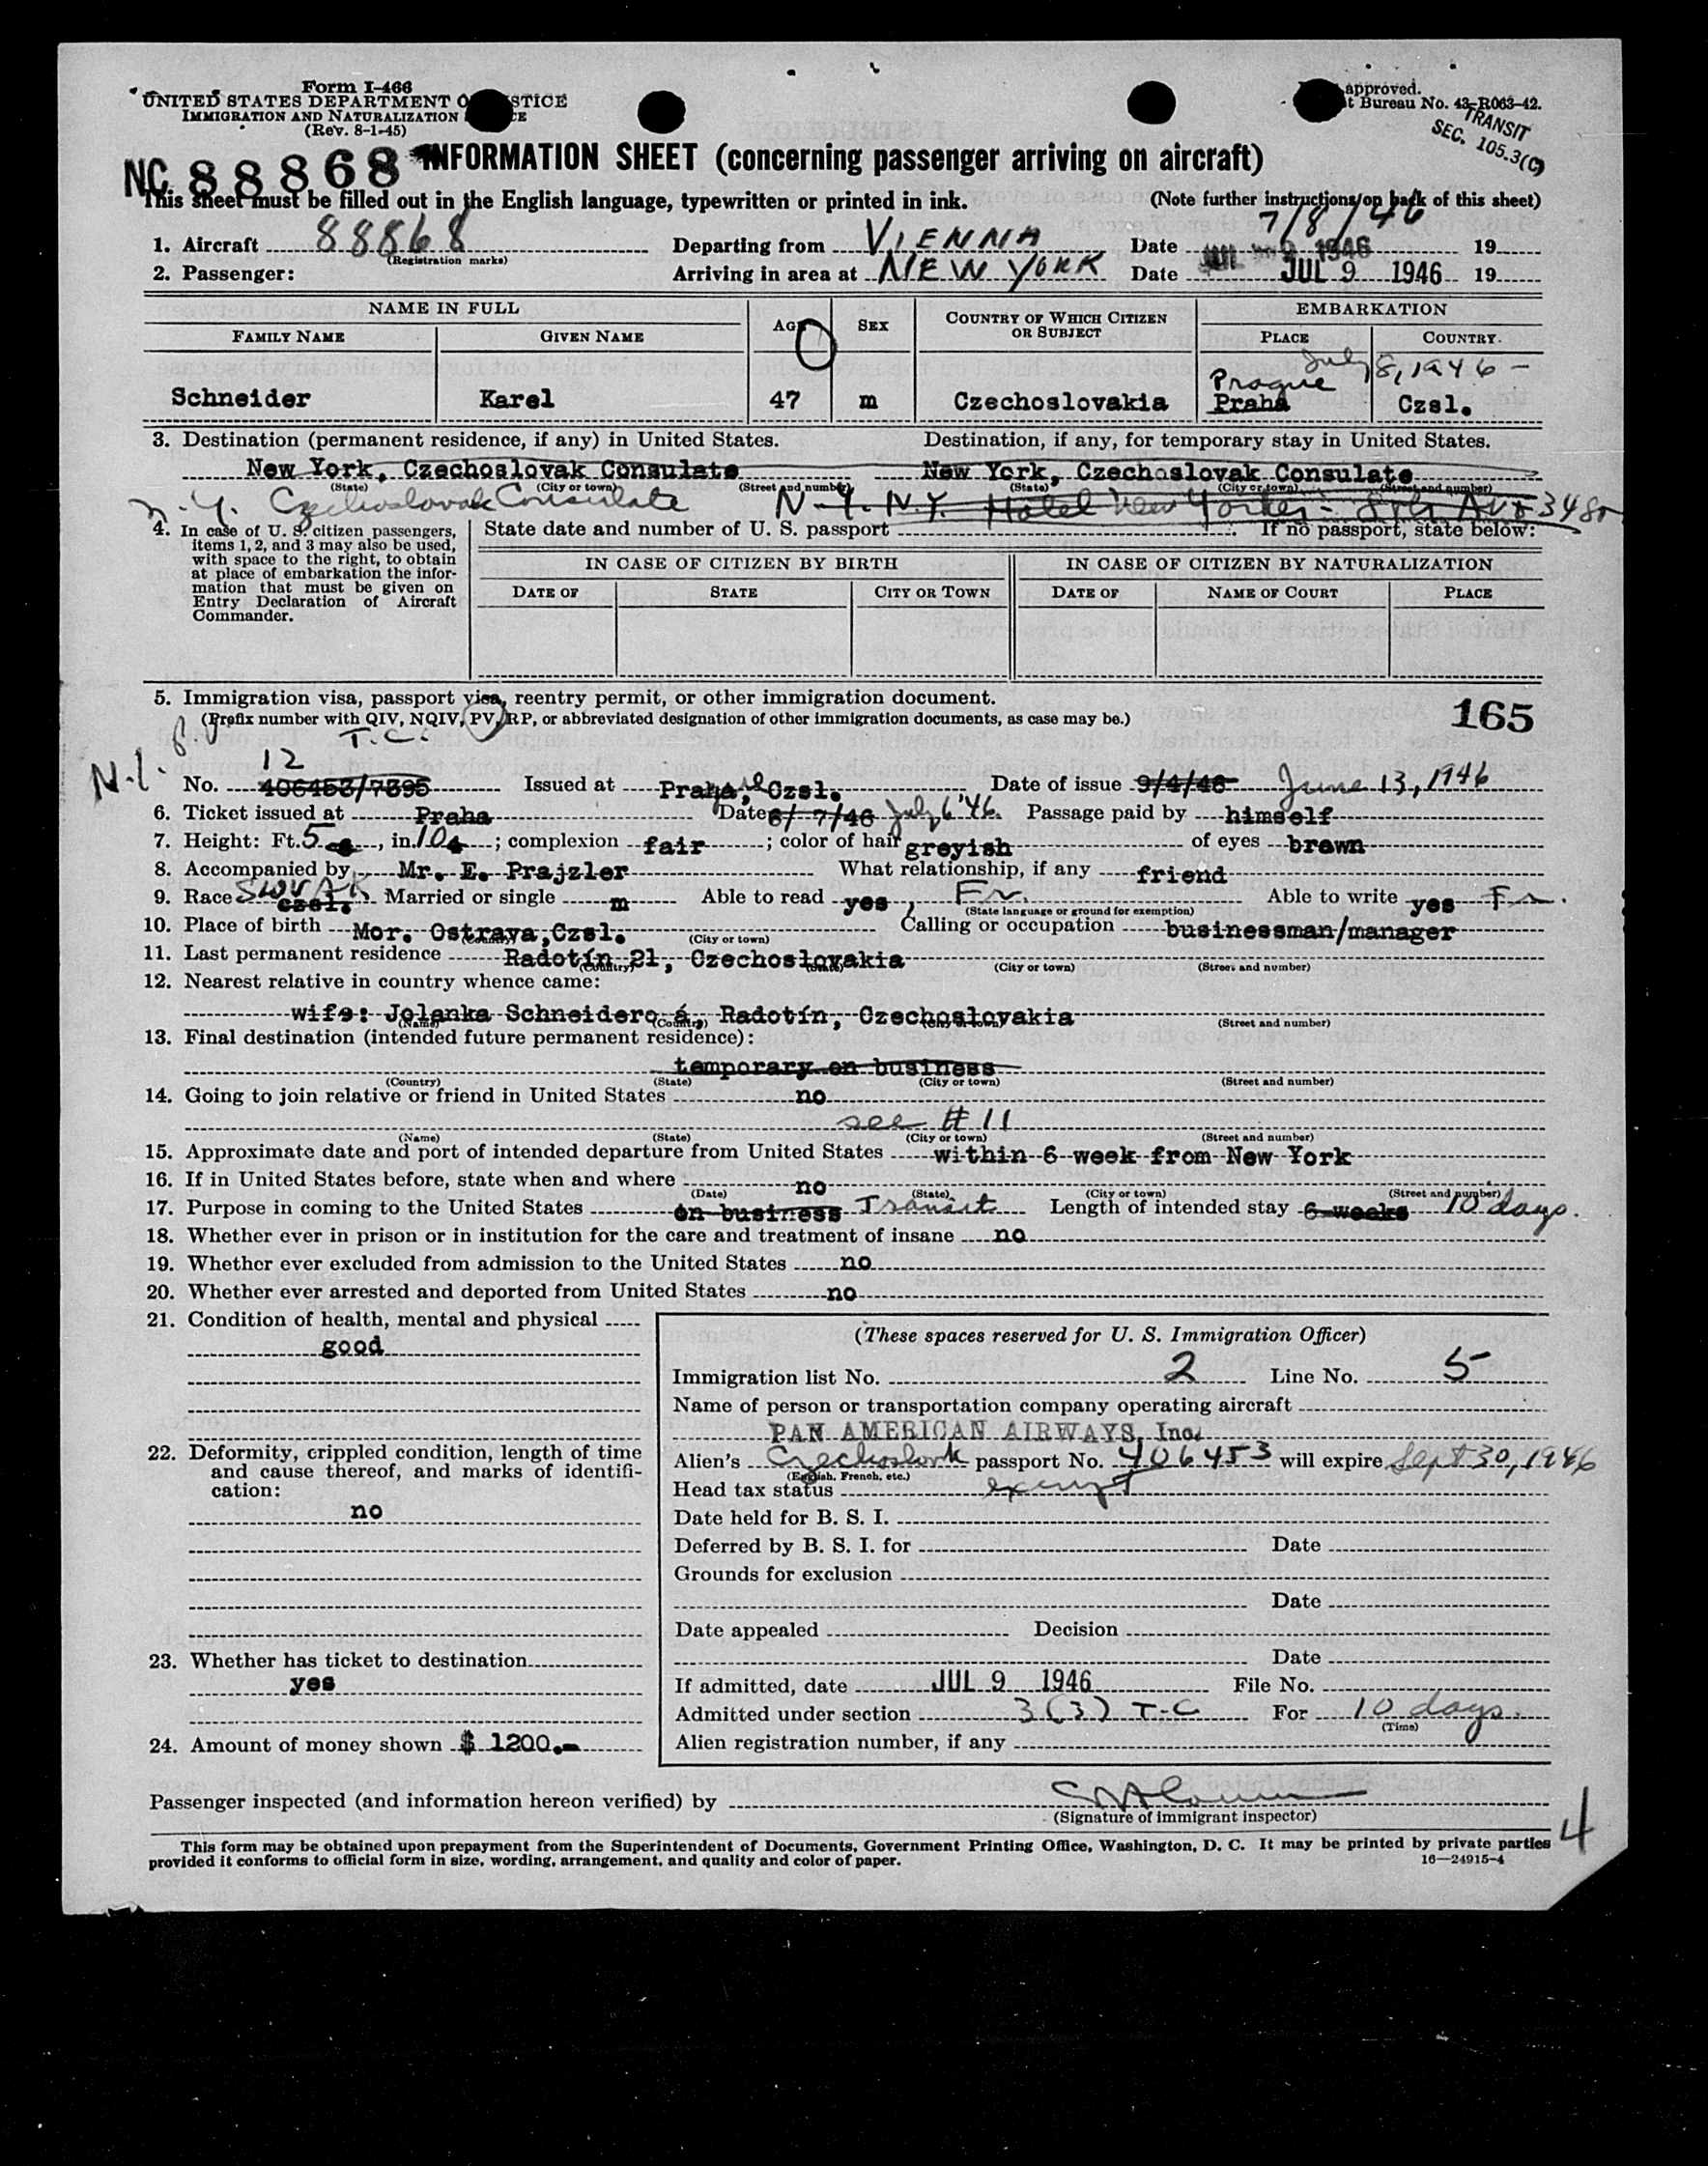 Form I-466
UNITED STATES DEPARTMENT O STICE
IMMIGRATION AND NATURALIZATION CE
(Rev. 8-1-45)
approved.
t Bureau No. 43-R063-42.
TRANSIT
SEC. 105.3(C)
NC 88868
INFORMATION SHEET (concerning passenger arriving on aircraft)
This sheet must be filled out in the English language, typewritten or printed in ink. (Note further instructions on back of this sheet)
7/8/46
1. Aircraft 88868 Departing from VIENNA Date 1946 19
(Registration marks)
2. Passenger: Arriving in area at NEW YORK Date JUL 9 1946 19
NAME IN FULL AGE SEX COUNTRY OF WHICH CITIZEN OR SUBJECT EMBARKATION
FAMILY NAME GIVEN NAME PLACE COUNTRY.
July 8, 1946 -
Prague
Schneider Karel 47 m Czechoslovakia Praha Czsl.
3. Destination (permanent residence, if any) in United States. Destination, if any, for temporary stay in United States.
New York, Czechoslovak Consulate New York, Czechoslovak Consulate
(State) (City or town) (Street and number) (State) (City or town) (Street and number)
n.y. Czechoslovak Consulate N.Y. N.Y. Hotel New Yorker - 8th Ave 34 St
4. In case of U. S. citizen passengers, items 1, 2, and 3 may also be used, with space to the right, to obtain at place of embarkation the information that must be given on Entry Declaration of Aircraft Commander.
State date and number of U. S. passport If no passport, state below:
IN CASE OF CITIZEN BY BIRTH IN CASE OF CITIZEN BY NATURALIZATION
DATE OF STATE CITY OR TOWN DATE OF NAME OF COURT PLACE
5. Immigration visa, passport visa, reentry permit, or other immigration document. 165
(Prefix number with QIV, NQIV, PV, RP, or abbreviated designation of other immigration documents, as case may be.)
T.C.
N.I. 12
No. 406453/7395 Issued at Praha, Czsl. Date of issue 9/4/46 June 13, 1946
6. Ticket issued at Praha Date 6/7/46 July 6 '46. Passage paid by himself
7. Height: Ft. 5, in. 10; complexion fair; color of hair greyish of eyes brown
8. Accompanied by Mr. E. Prajzler What relationship, if any friend
9. Race SLOVAK czsl. Married or single m Able to read yes, Fr. Able to write yes Fr.
(State language or ground for exemption)
10. Place of birth Mor. Ostrava, Czsl. Calling or occupation businessman/manager
(Country) (City or town)
11. Last permanent residence Radotín 21, Czechoslovakia
(Country) (State) (City or town) (Street and number)
12. Nearest relative in country whence came:
wife: Jolanka Schneidero á, Radotín, Czechoslovakia
(Name) (Country) (City or town) (Street and number)
13. Final destination (intended future permanent residence):
temporary on business
(Country) (State) (City or town) (Street and number)
14. Going to join relative or friend in United States no
see # 11
(Name) (State) (City or town) (Street and number)
15. Approximate date and port of intended departure from United States within 6 week from New York
16. If in United States before, state when and where no
(Date) (State) (City or town) (Street and number)
17. Purpose in coming to the United States on business Transit Length of intended stay 6 weeks 10 days.
18. Whether ever in prison or in institution for the care and treatment of insane no
19. Whether ever excluded from admission to the United States no
20. Whether ever arrested and deported from United States no
21. Condition of health, mental and physical
good
22. Deformity, crippled condition, length of time and cause thereof, and marks of identification:
no
23. Whether has ticket to destination
yes
24. Amount of money shown $ 1200.-
(These spaces reserved for U. S. Immigration Officer)
Immigration list No. 2 Line No. 5
Name of person or transportation company operating aircraft
PAN AMERICAN AIRWAYS, Inc.
Alien's Czechoslovk passport No. 406453 will expire Sept 30, 1946
(English, French, etc.)
Head tax status exempt
Date held for B. S. I.
Deferred by B. S. I. for Date
Grounds for exclusion
Date
Date appealed Decision
Date
If admitted, date JUL 9 1946 File No.
Admitted under section 3(3) T-C For 10 days.
(Time)
Alien registration number, if any
Passenger inspected (and information hereon verified) by
(Signature of immigrant inspector)
4
This form may be obtained upon prepayment from the Superintendent of Documents, Government Printing Office, Washington, D. C. It may be printed by private parties
provided it conforms to official form in size, wording, arrangement, and quality and color of paper. 16—24915-4